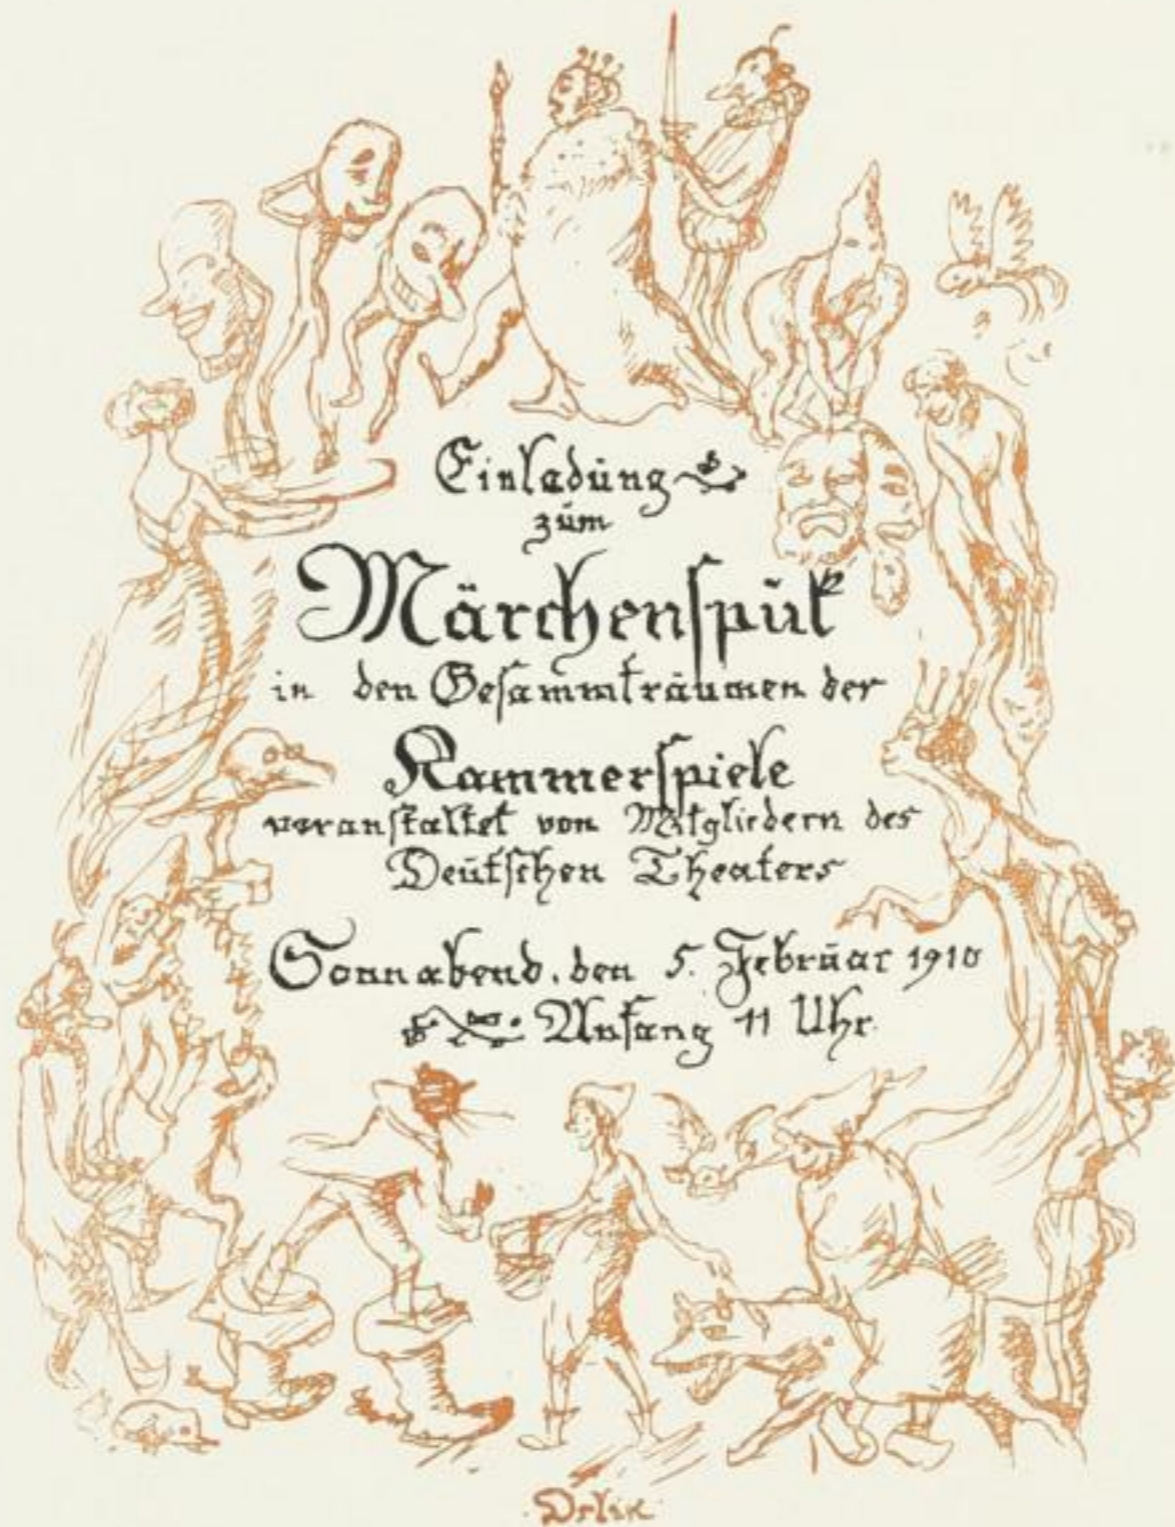 Einladung
zum
Märchenspuk
in den Gesammträumen der
Kammerspiele
veranstaltet von Mitgliedern des
Deutschen Theaters
Sonnabend. den 5. Februar 1910
Anfang 11 Uhr.
Orlik